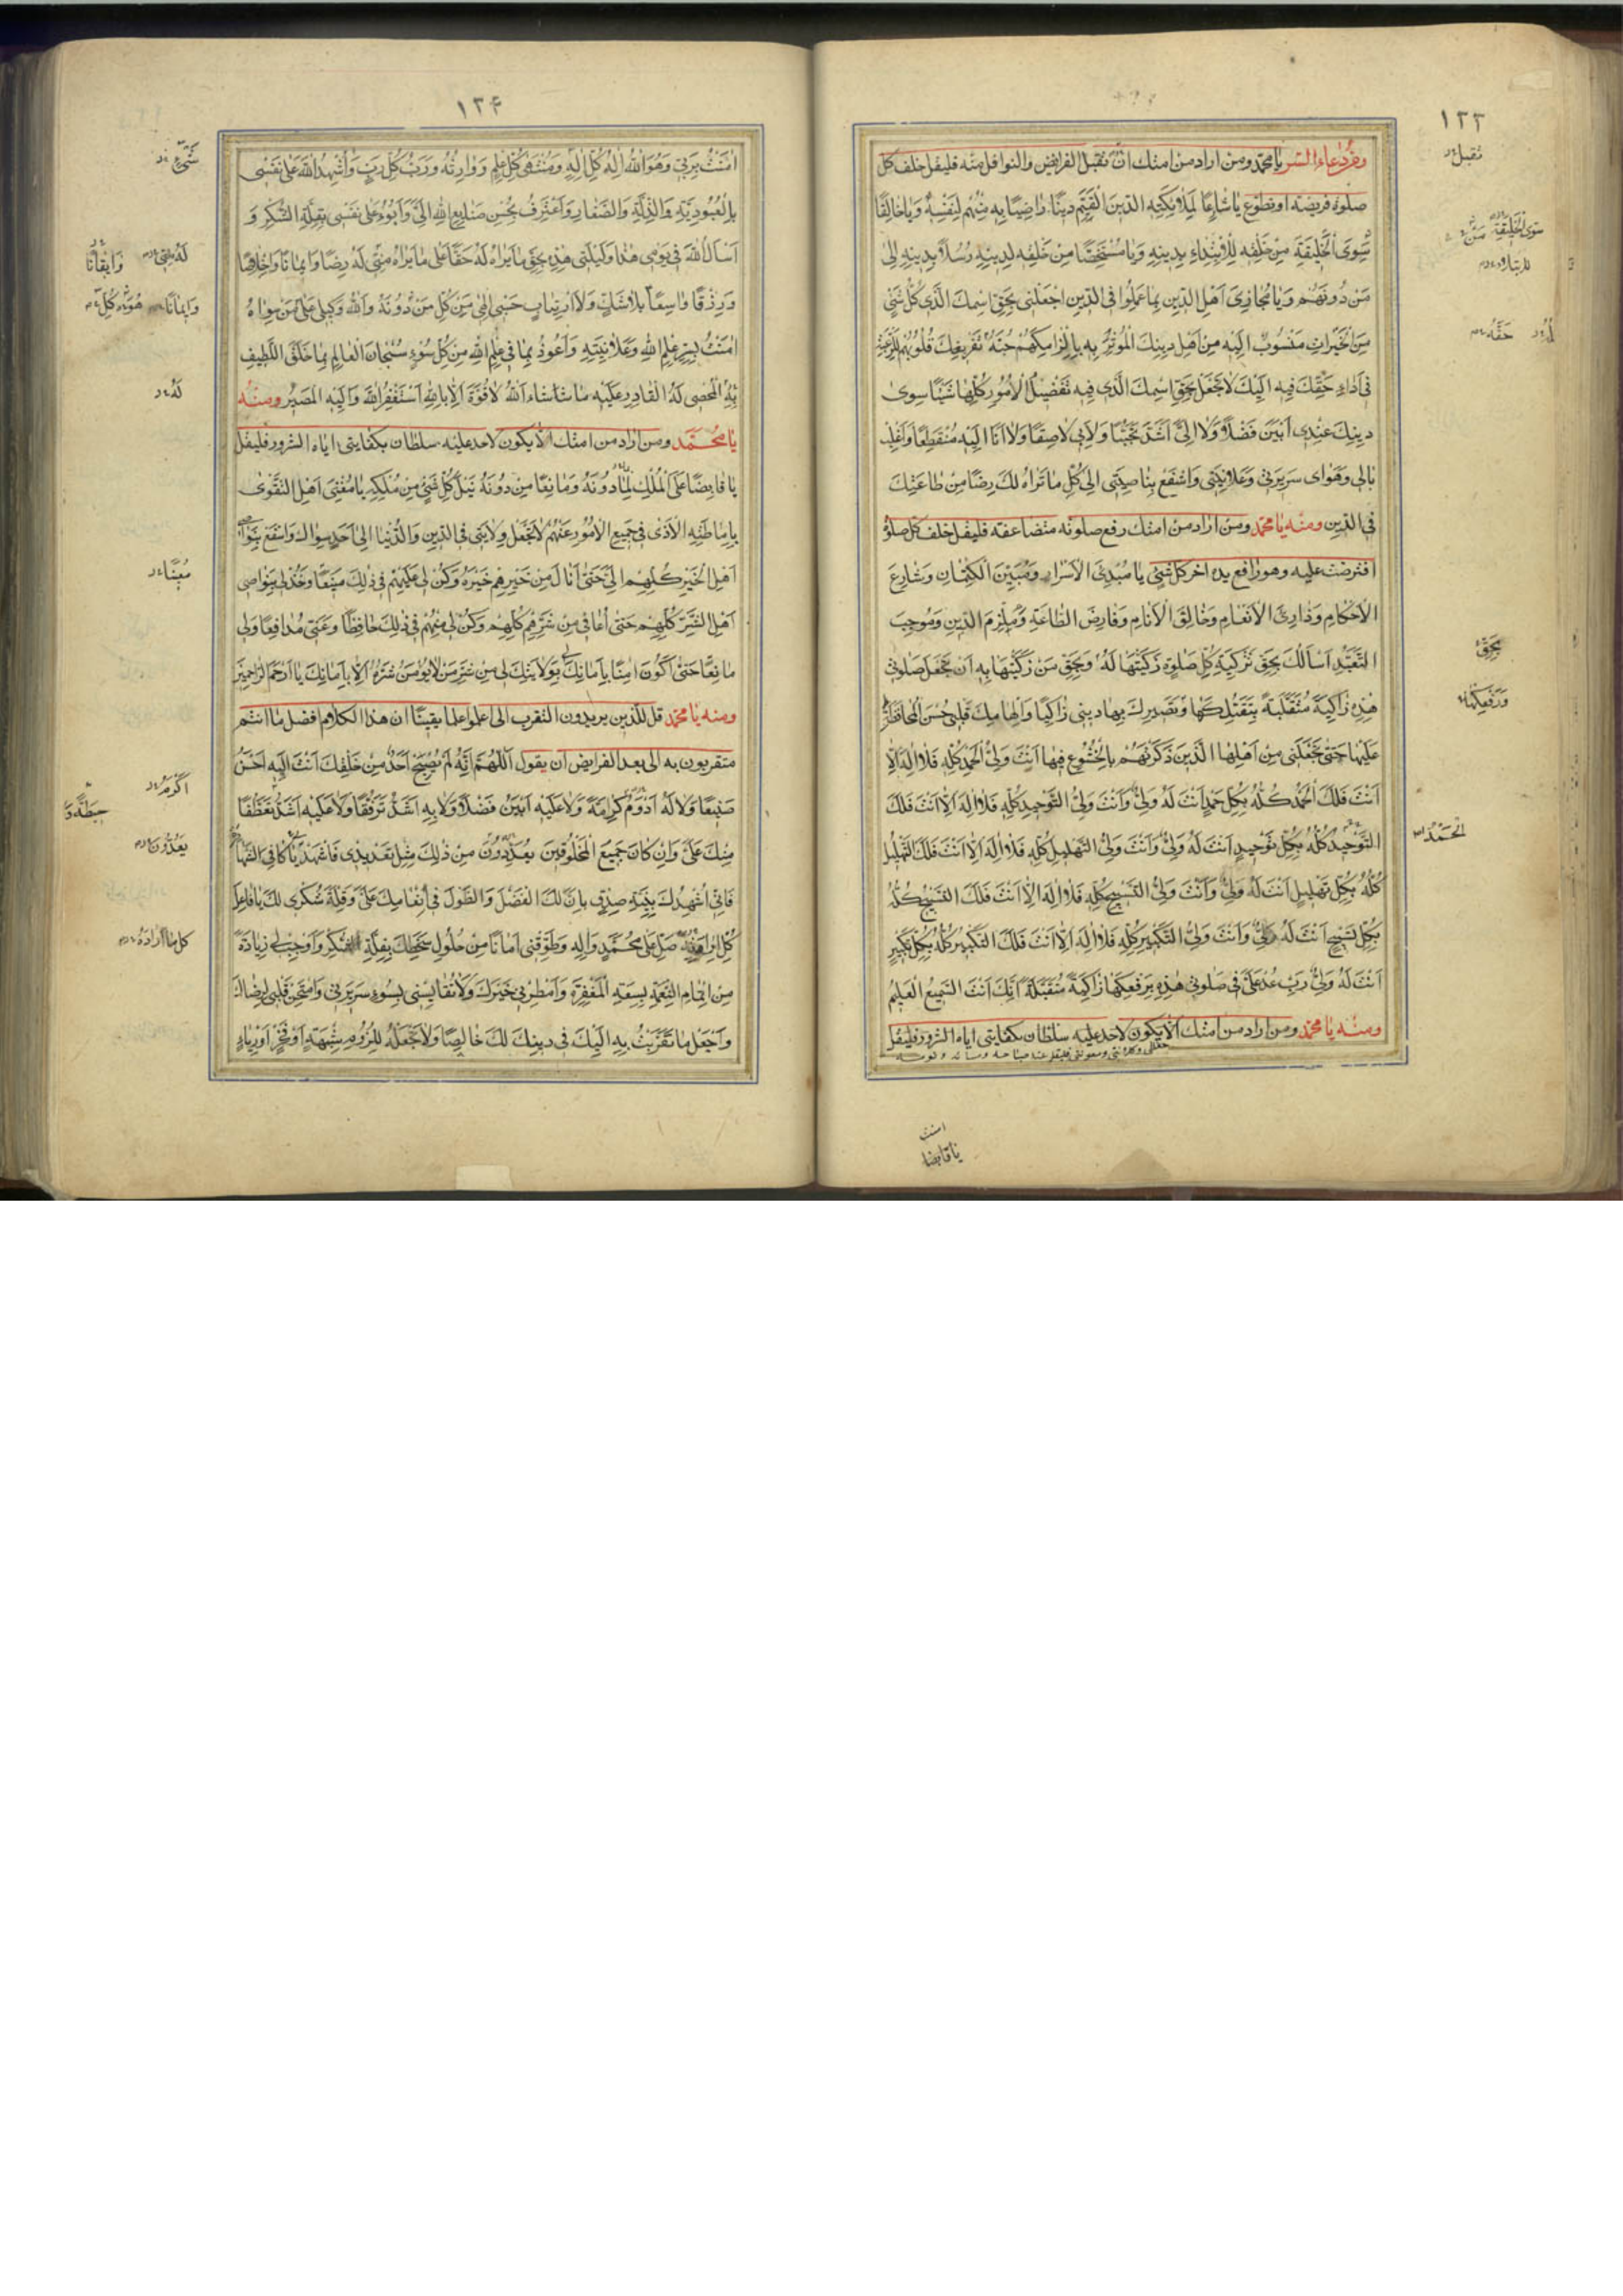 ١٢٣
ومن دعاء السر يا محمد ومن اراد من امتك ان تقبل الفرايض والنوافل منه فليقل خلف كل
صلوة فريضة او تطوع يا شارعًا لِمَلائِكَتِهِ الدّينَ القَيِّمَ دينًا راضِيًا بِهِ مِنْهُمْ لِنَفْسِهِ وَيا خالِقًا
سِوَى الْخَليقَةِ مِنْ خَلْقِهِ لِلْاِبْتِداءِ بِدينِهِ وَيا مُسْتَخِصًّا مِنْ خَلْقِهِ لِدينِهِ رُسُلًا بِدينِهِ اِلى
مَنْ دُونَهُمْ وَيا مُجازِىَ اَهْلِ الدّينِ بِما عَمِلُوا فِى الدّينِ اجْعَلْنى بِحَقِّ اسْمِكَ الَّذى كُلُّ شَىْءٍ
مِنَ الْخَيْراتِ مَنْسُوبٌ اِلَيْهِ مِنْ اَهْلِ دينِكَ الْمُؤْثِرِ بِهِ بِاِلْزامِكَهُمْ حَقَّهُ وَتَفْريغِكَ قُلُوبَهُمْ لِلرَّغْبَةِ
فى اَداءِ حَقِّكَ فيهِ اِلَيْكَ لا تَجْعَلْ بِحَقِّ اسْمِكَ الَّذى فيهِ تَفْصيلُ الْاُمُورِ كُلِّها شَيْئًا سِوى
دينِكَ عِنْدى اَبْيَنَ فَضْلًا وَلا اِلَىَّ اَشَدَّ تَحَبُّبًا وَلا بى لاصِقًا وَلا اَنَا اِلَيْهِ مُنْقَطِعًا وَاغْلِبْ
بالى وَهَواىَ سَريرَتى وَعَلانِيَتى وَاسْفَعْ بِناصِيَتى اِلى كُلِّ ما تَراهُ لَكَ رِضًا مِنْ طاعَتِكَ
فِى الدّينِ ومنه يا محمد ومن اراد من امتك رفع صلوته متضاعفة فليقل خلف كل صلوة
افترضت عليه وهو رافع يده اخر كل شىء يا مُبْدِئَ الْاَسْرارِ وَمُبَيِّنَ الْكِتْمانِ وَشارِعَ
الْاَحْكامِ وَذارِئَ الْاَنْعامِ وَخالِقَ الْاَنامِ وَفارِضَ الطّاعَةِ وَمُلْزِمَ الدّينِ وَمُوجِبَ
التَّعَبُّدِ اَسْاَلُكَ بِحَقِّ تَزْكِيَةِ كُلِّ صَلوةٍ زَكَّيْتَها لَهُ وَبِحَقِّ مَنْ زَكَّيْتَها بِهِ اَنْ تَجْعَلَ صَلوتى
هذِهِ زاكِيَةً مُتَقَبَّلَةً بِتَقَبُّلِكَها وَتَصْييرِكَ بِها دينى زاكِيًا وَاِلْهامِكَ قَلْبى حُسْنَ الْمُحافَظَةِ
عَلَيْها حَتّى تَجْعَلَنى مِنْ اَهْلِهَا الَّذينَ ذَكَرْتَهُمْ بِالْخُشُوعِ فيها اَنْتَ وَلِىُّ الْحَمْدِ كُلِّهِ فَلا اِلهَ اِلّا
اَنْتَ فَلَكَ الْحَمْدُ كُلُّهُ بِكُلِّ حَمْدٍ اَنْتَ لَهُ وَلِىٌّ وَاَنْتَ وَلِىُّ التَّوْحيدِ كُلِّهِ فَلا اِلهَ اِلّا اَنْتَ فَلَكَ
التَّوْحيدُ كُلُّهُ بِكُلِّ تَوْحيدٍ اَنْتَ لَهُ وَلِىٌّ وَاَنْتَ وَلِىُّ التَّهْليلِ كُلِّهِ فَلا اِلهَ اِلّا اَنْتَ فَلَكَ التَّهْليلُ
كُلُّهُ بِكُلِّ تَهْليلٍ اَنْتَ لَهُ وَلِىٌّ وَاَنْتَ وَلِىُّ التَّسْبيحِ كُلِّهِ فَلا اِلهَ اِلّا اَنْتَ فَلَكَ التَّسْبيحُ كُلُّهُ
بِكُلِّ تَسْبيحٍ اَنْتَ لَهُ وَلِىٌّ وَاَنْتَ وَلِىُّ التَّكْبيرِ كُلِّهِ فَلا اِلهَ اِلّا اَنْتَ فَلَكَ التَّكْبيرُ كُلُّهُ بِكُلِّ تَكْبيرٍ
اَنْتَ لَهُ وَلِىٌّ رَبِّ عُدْ عَلَىَّ فى صَلوتى هذِهِ بِرَفْعِكَها زاكِيَةً مُتَقَبَّلَةً اِنَّكَ اَنْتَ السَّميعُ الْعَليمُ
ومنه يا محمد ومن اراد من امتك الا يكون لاحد عليه سلطان بكفايتى اياه الشرور فليقل
تقبل
سِوَى الْخَليقَةِ مَنْ
حَقَّهُ
بِحَقِّ
وَرَفْعِكَها
الحَمْدُ
امنت
يا قابضا
١٢۴
امَنْتُ بِرَبّى وَهُوَ اللهُ اِلهُ كُلِّ اِلهٍ وَمُنْتَهى كُلِّ عِلْمٍ وَوارِثُهُ وَرَبُّ كُلِّ رَبٍّ وَاُشْهِدُ اللهَ عَلى نَفْسى
بِالْعُبُودِيَّةِ وَالذِّلَّةِ وَالصَّغارِ وَاَعْتَرِفُ بِحُسْنِ صَنايِعِ اللهِ اِلَىَّ وَاَبُوءُ عَلى نَفْسى بِقِلَّةِ الشُّكْرِ وَ
اَسْاَلُ اللهَ فى يَوْمى هذا وَلَيْلَتى هذِهِ بِحَقِّ ما يَراهُ لَهُ حَقًّا عَلى ما يَراهُ مِنّى لَهُ رِضًا وَايمانًا وَاِخْلاصًا
وَرِزْقًا واسِعًا بِلا شَكٍّ وَلَا ارْتِيابٍ حَسْبى اِلهى مِنْ كُلِّ مَنْ دُونَهُ وَاللهُ وَكيلى عَلى مَنْ سِواهُ
امَنْتُ بِسِرِّ عِلْمِ اللهِ وَعَلانِيَتِهِ وَاَعُوذُ بِما فى عِلْمِ اللهِ مِنْ كُلِّ سُوءٍ سُبْحانَ الْعالِمِ بِما خَلَقَ اللَّطيفِ
بِهِ الْمُحْصى لَهُ الْقادِرِ عَلَيْهِ ما شاءَ اللهُ لا قُوَّةَ اِلّا بِاللهِ اَسْتَغْفِرُ اللهَ وَاِلَيْهِ الْمَصيرُ ومنه
يا محمد ومن اراد من امتك الا يكون لاحد عليه سلطان بكفايتى اياه الشرور فليقل
يا قابِضًا عَلَى الْمُلْكِ لِما دُونَهُ وَمانِعًا مِنْ دُونِهِ نَيْلَ كُلِّ شَىْءٍ مِنْ مُلْكِهِ يا مُغْنِىَ اَهْلِ التَّقْوى
بِاِماطَتِهِ الْاَذى فى جَميعِ الْاُمُورِ عَنْهُمْ لا تَجْعَلْ وِلايَتى فِى الدّينِ وَالدُّنْيا اِلى اَحَدٍ سِواكَ وَاسْفَعْ بِنَواصى
اَهْلِ الْخَيْرِ كُلِّهِمْ اِلَىَّ حَتّى اَنالَ مِنْ خَيْرِهِمْ خَيْرَهُ وَكُنْ لى عَلَيْهِمْ فى ذلِكَ مُعينًا وَخُذْ لى بِنَواصى
اَهْلِ الشَّرِّ كُلِّهِمْ حَتّى اُعافى مِنْ شَرِّهِمْ كُلِّهِمْ وَكُنْ لى مِنْهُمْ فى ذلِكَ حافِظًا وَعَنّى مُدافِعًا وَلى
مانِعًا حَتّى اَكُونَ امِنًا بِاَمانِكَ لى بِوِلايَتِكَ لى مِنْ شَرِّ مَنْ لا يُؤْمَنُ شَرُّهُ اِلّا بِاَمانِكَ يا اَرْحَمَ الرّاحِمينَ
ومنه يا محمد قل للذين يريدون التقرب الى اعلموا علما يقينا ان هذا الكلام افضل ما انتم
متقربون به الى بعد الفرايض ان يقول اَللّهُمَّ اِنَّهُ لَمْ يُصْبِحْ اَحَدٌ مِنْ خَلْقِكَ اَنْتَ اِلَيْهِ اَحْسَنُ
صَنيعًا وَلا لَهُ اَدْوَمُ كَرامَةً وَلا عَلَيْهِ اَبْيَنُ فَضْلًا وَلا بِهِ اَشَدُّ تَرَفُّقًا وَلا عَلَيْهِ اَشَدُّ تَعَطُّفًا
مِنْكَ عَلَىَّ وَاِنْ كانَ جَميعُ الْمَخْلُوقينَ يُعَدِّدُونَ مِنْ ذلِكَ مِثْلَ تَعْديدى فَاشْهَدْ يا كافِىَ الشَّهادَةِ
فَاِنّى اُشْهِدُكَ بِنِيَّةِ صِدْقٍ بِاَنَّ لَكَ الْفَضْلَ وَالطَّوْلَ فى اِنْعامِكَ عَلَىَّ وَقِلَّةِ شُكْرى لَكَ يا فاعِلَ
كُلِّ اِرادَةٍ صَلِّ عَلى مُحَمَّدٍ وَالِهِ وَطَوِّقْنى اَمانًا مِنْ حُلُولِ سَخَطِكَ بِقِلَّةِ الشُّكْرِ وَاَوْجِبْ لى زِيادَةً
مِنْ اِتْمامِ النِّعْمَةِ بِسَعَةِ الْمَغْفِرَةِ وَاَمْطِرْنى خَيْرَكَ وَلا تُقايِسْنى بِسُوءِ سَريرَتى وَامْتَحِنْ قَلْبى لِرِضاكَ
وَاجْعَلْ ما تَقَرَّبْتُ بِهِ اِلَيْكَ فى دينِكَ لَكَ خالِصًا وَلا تَجْعَلْهُ لِلُزُومِ شُبْهَةٍ اَوْ فَخْرٍ اَوْ رِياءٍ
شَىْءٍ
لَهُ مِنّى
وَايقانًا
وَايمانًا
هُوَ
كُلِّ
لَهُ
مُعينًا
اَكْرَمُ
حيطَةً وَ
يَعُدُّونَ
كل ما اَرادَهُ